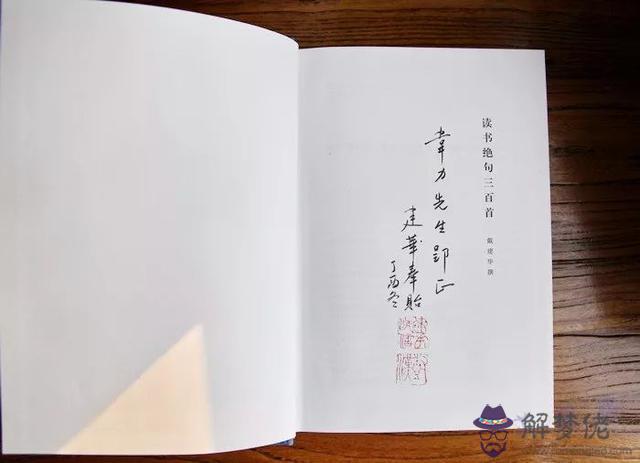 读书绝句三百首
戴建华撰
韦力先生郢正
建华奉贻
丁酉冬
解梦佬